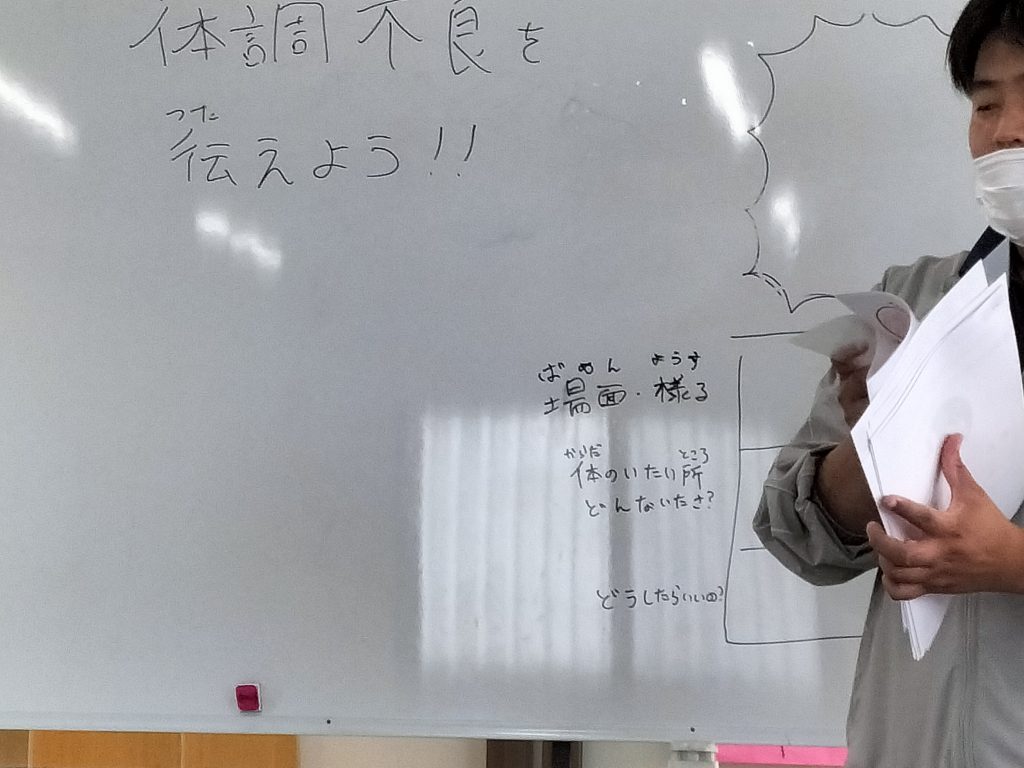 体調不良を
つた
伝えよう!!
ばめん ようす
場面・様子
からだ ところ
体のいたい所
どんないたさ?
どうしたらいいの?